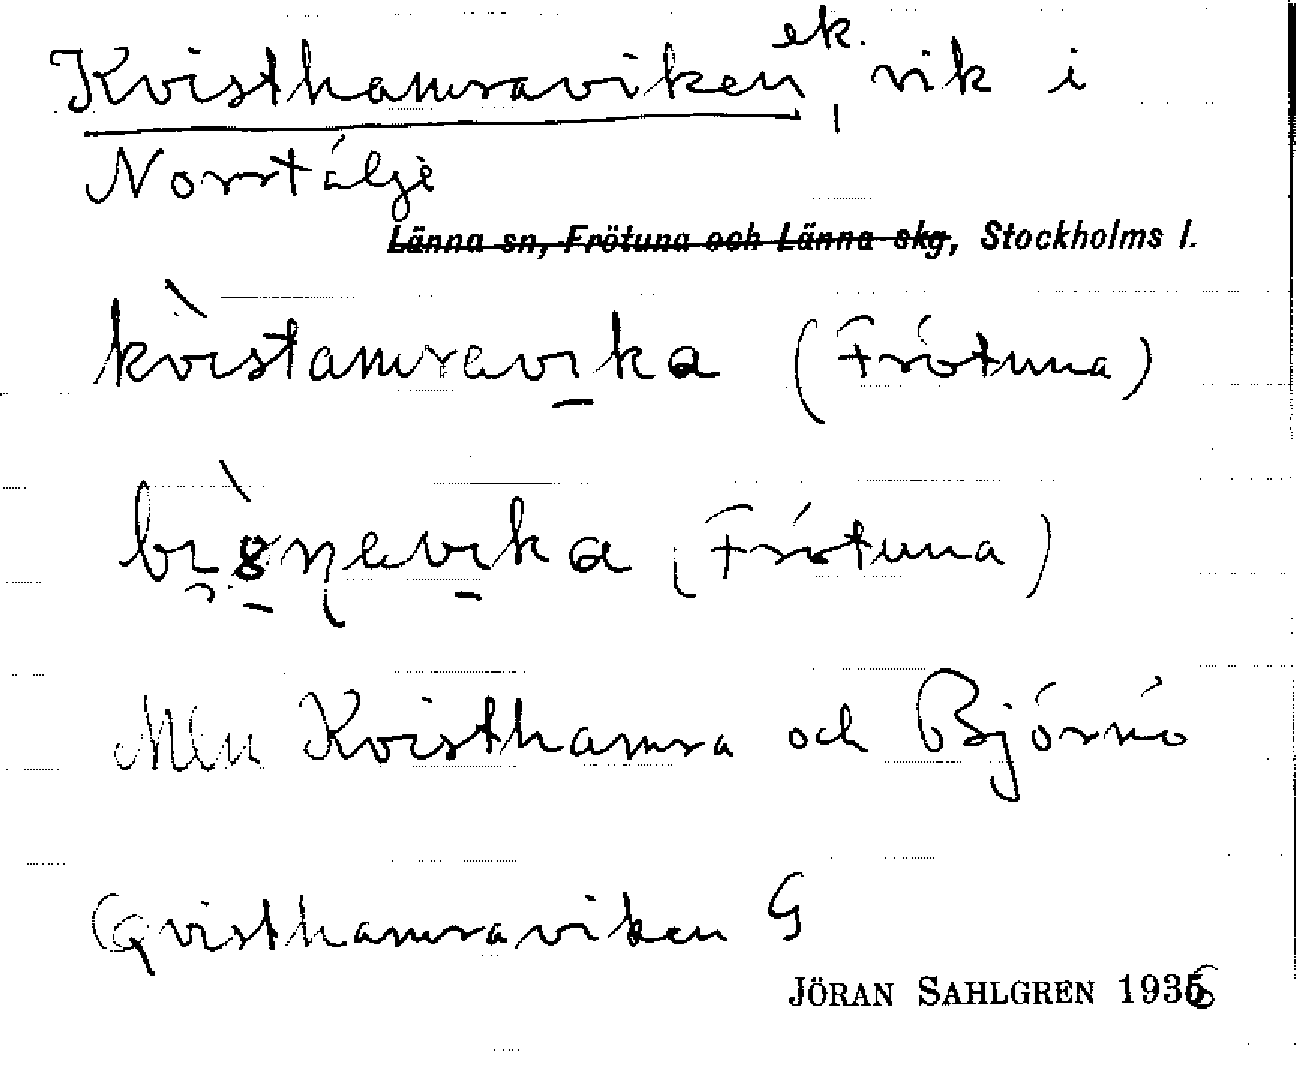 Kvisthamraviken ek., vik i
Norrtälje
Länna sn, Frötuna och Länna skg, Stockholms l.
kvìstamravika (Frötuna)
(Frötuna)
Mln Kvisthamra och Björnö
Qvisthamraviken G
JÖRAN SAHLGREN 1936